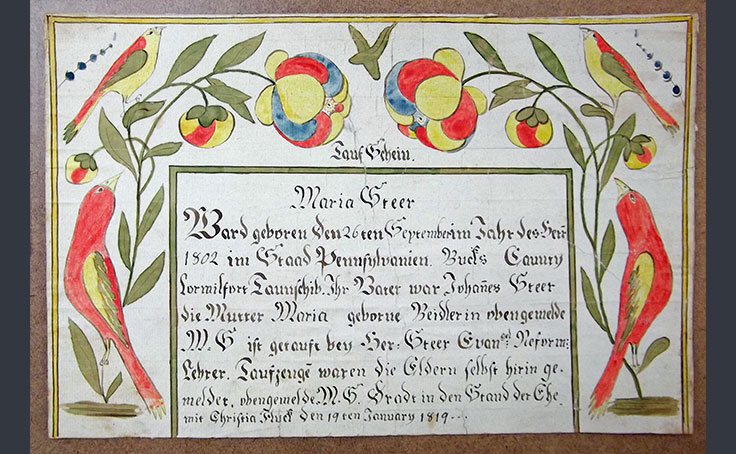 Tauf Schein.
Maria Steer
Ward geboren den 26ten September im Jahr des Herr
1802 im Staad Pennsylvanien. Bucks Caunty
Lormilfort Taunschib. Ihr Vater war Johañes Steer
die Mutter Maria geborne Beidler in obengemelde
M. S ist getauft bey Her: Steer Evan Reform:
Lehrer. Taufzeuge waren die Eldern selbst hirin ge-
meldet, obengemelde M. S. Dradt in den Stand der Ehe.
mit Christia Fluck den 19ten January 1819